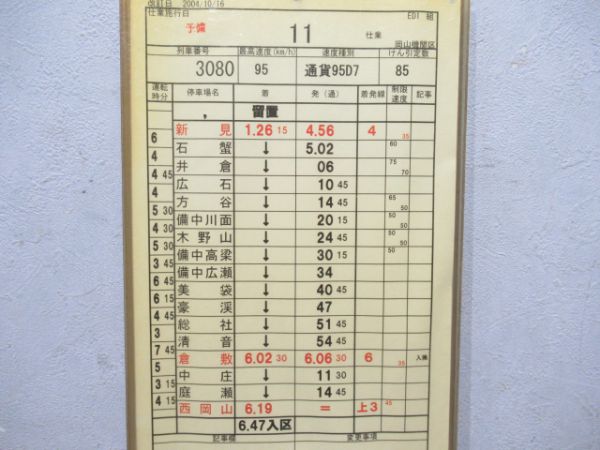 改訂日 2004/10/16
仕業施行日 EDI 組
予備 11 仕業 岡山機関区
列車番号 最高速度(km/h) 速度種別 けん引定数
3080 95 通貨95D7 85
運転時分 停車場名 着 発(通) 着発線 制限速度 記事
, 留置
新見 1.26 15 4.56 4 35
6
石蟹 ↓ 5.02 60
4
井倉 ↓ 06 75 70
4 45
広石 ↓ 10 45
4
方谷 ↓ 14 45 65 50
5 30
備中川面 ↓ 20 15 50 50
4 30
木野山 ↓ 24 45 50 50
5 30
備中高梁 ↓ 30 15 50
3 45
備中広瀬 ↓ 34
6 45
美袋 ↓ 40 45
6 15
豪渓 ↓ 47
4 45
総社 ↓ 51 45
3
清音 ↓ 54 45
7 45
倉敷 6.02 30 6.06 30 6 35 入換
5
中庄 ↓ 11 30
3 15
庭瀬 ↓ 14 45
4 15
西岡山 6.19 = 上3 45
6.47入区
記事欄 変更事項